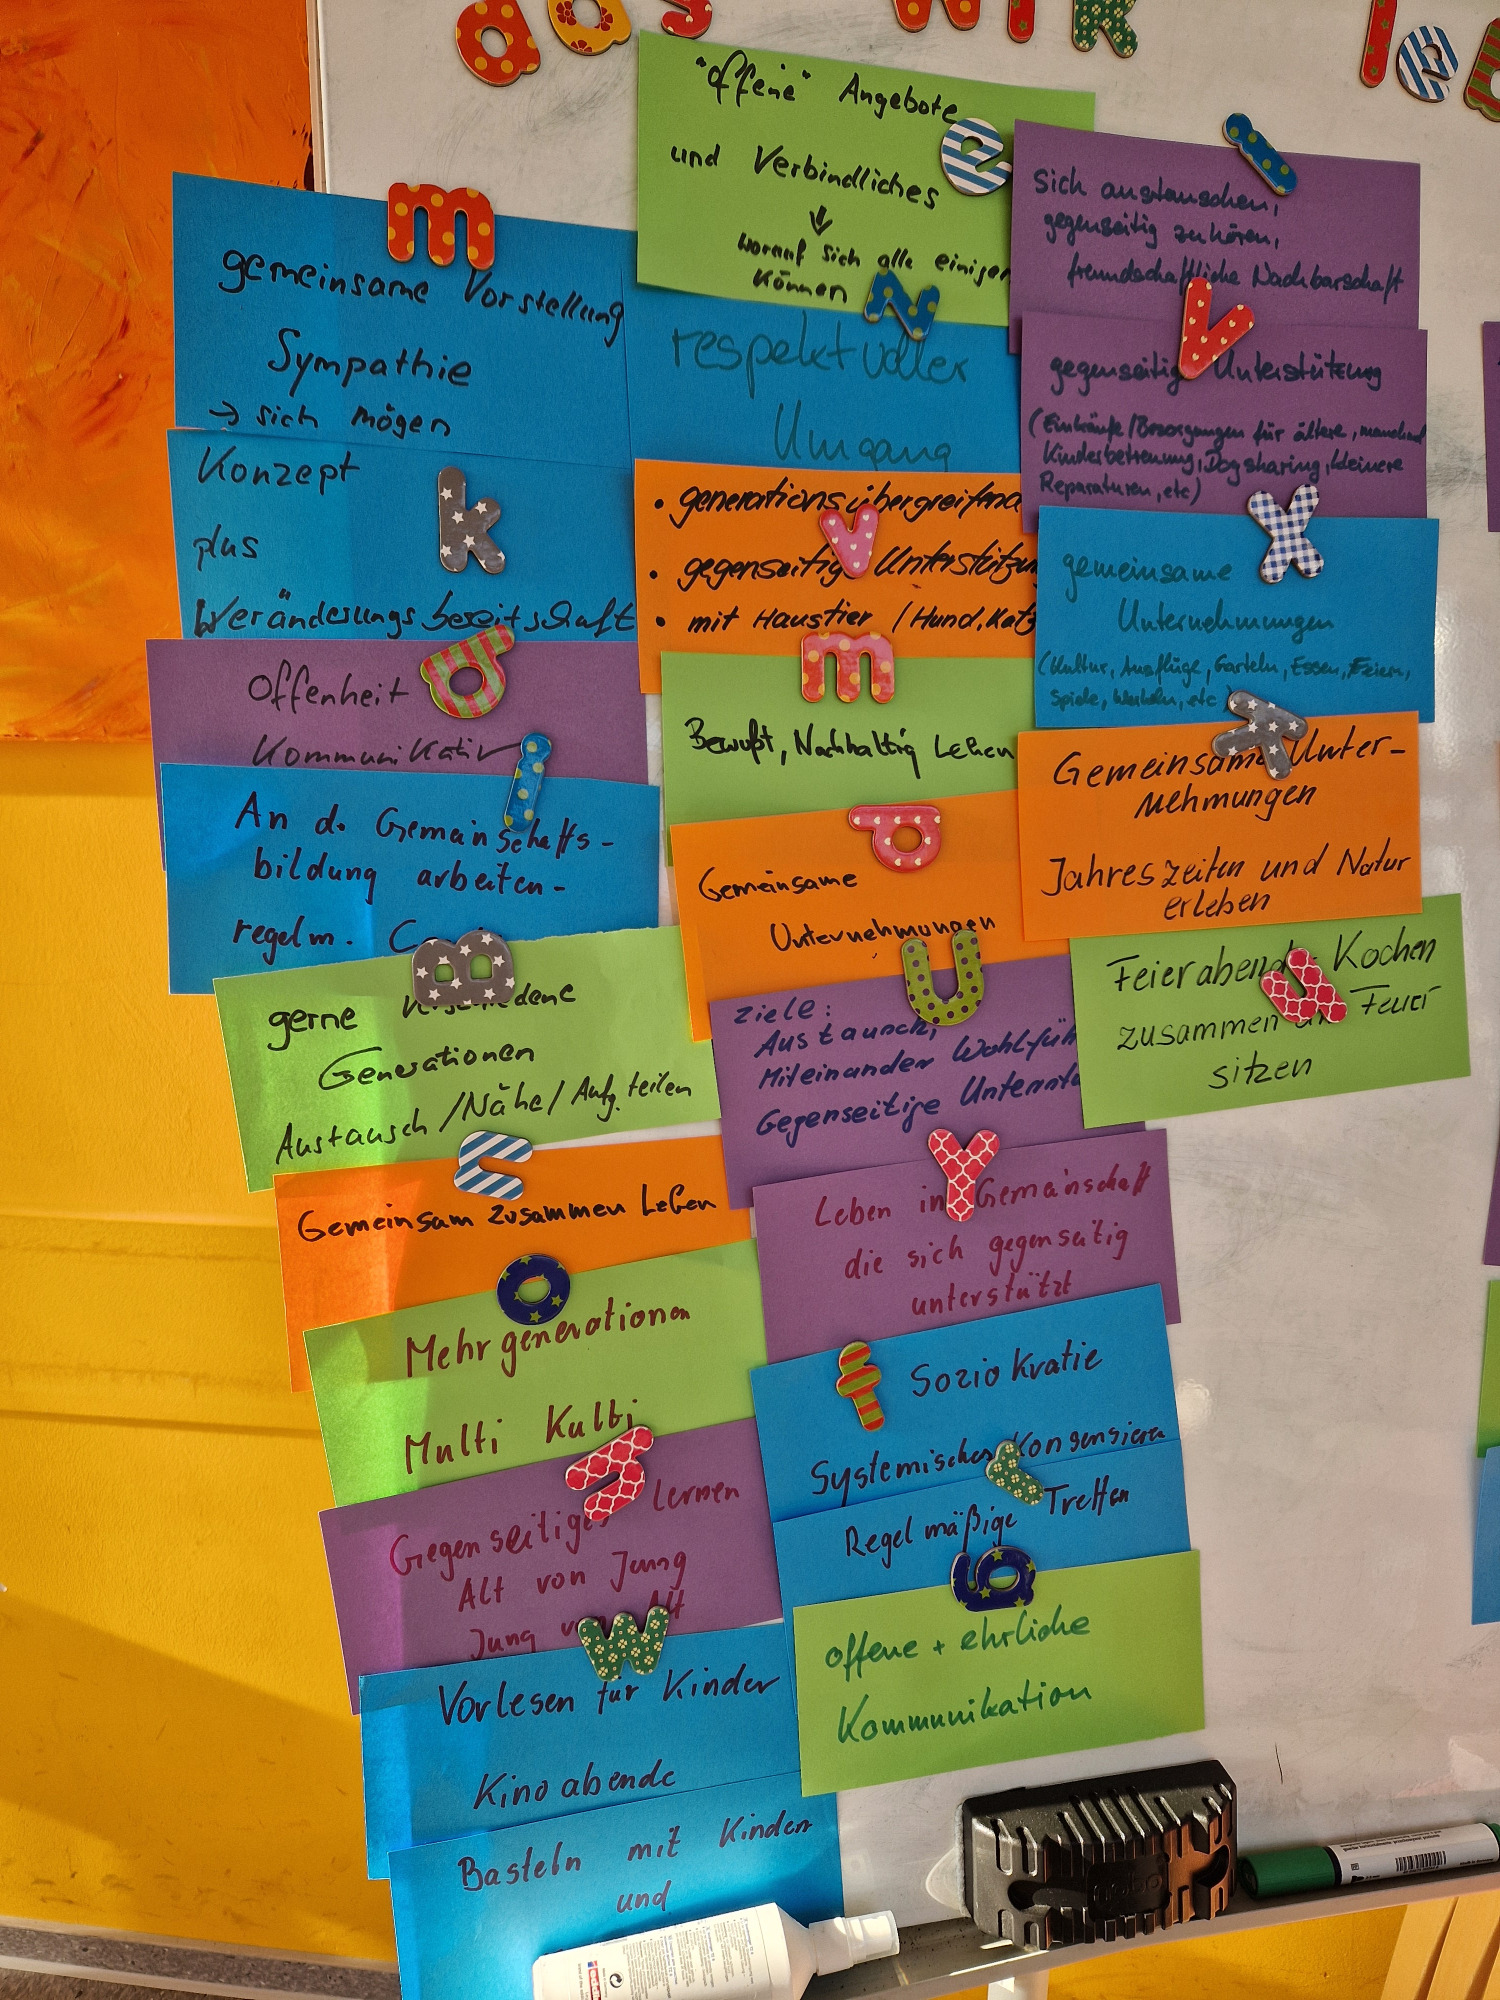 das wir le
gemeinsame Vorstellung
Sympathie
→ sich mögen
Konzept
plus
Veränderungsbereitschaft
Offenheit
Kommunikativ
An d. Gemeinschafts-
bildung arbeiten-
regelm.
gerne
Generationen
Austausch / Nähe / Aufg. teilen
Gemeinsam zusammen Leben
Mehrgenerationen
Multi Kulti
Gegenseitiges Lernen
Alt von Jung
Jung von Alt
Vorlesen für Kinder
Kinoabende
Basteln mit Kinder
und
"offene" Angebote
und Verbindliches
↓
worauf sich alle einigen
können
respektvoller
Umgang
• generationsübergreifend
• gegenseitige Unterstützun
• mit Haustier / Hund, Katz
Bewußt, Nachhaltig Leben
Gemeinsame
Unternehmungen
Ziele:
Austausch,
Miteinander Wohlfüh
Gegenseitige Unterstü
Leben in Gemeinschaft
die sich gegenseitig
unterstützt
Soziokratie
Systemisches Konsensieren
Regelmäßige Treffen
offene + ehrliche
Kommunikation
sich austauschen,
gegenseitig zuhören,
freundschaftliche Nachbarschaft
gegenseitige Unterstützung
(Einkäufe / Besorgungen für ältere, manchmal
Kinderbetreuung, Dogsharing, kleinere
Reparaturen, etc)
gemeinsame
Unternehmungen
(Kultur, Ausflüge, Garteln, Essen, Feiern,
Spiele, Werkeln, etc
Gemeinsame Unter-
nehmungen
Jahreszeiten und Natur
erleben
Feierabend Kochen
zusammen am Feuer
sitzen